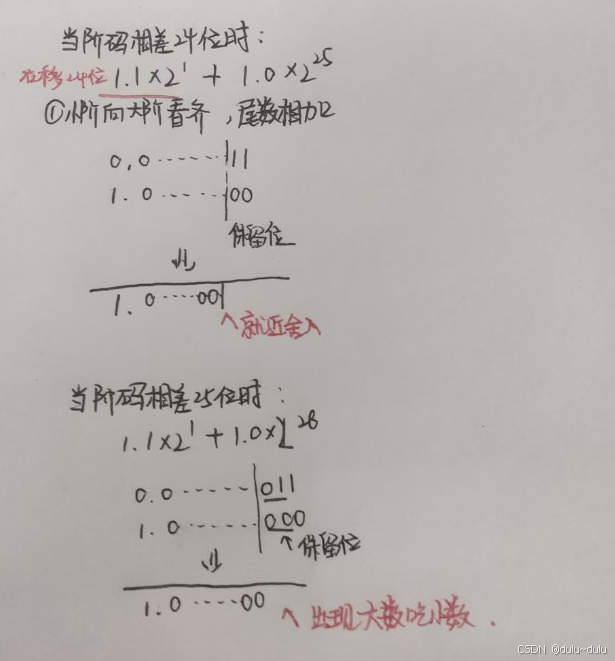 当阶码相差24位时：
右移24位 1.1×2^1 + 1.0×2^25
①小阶向大阶看齐，尾数相加
0.0······|11
1.0······|00
保留位
⇓
1.0····00|
^就近舍入
当阶码相差25位时：
1.1×2^1 + 1.0×2^26
0.0······|011
1.0······|000
↑保留位
⇓
1.0·····00
^出现大数吃小数.
CSDN @dulu~dulu